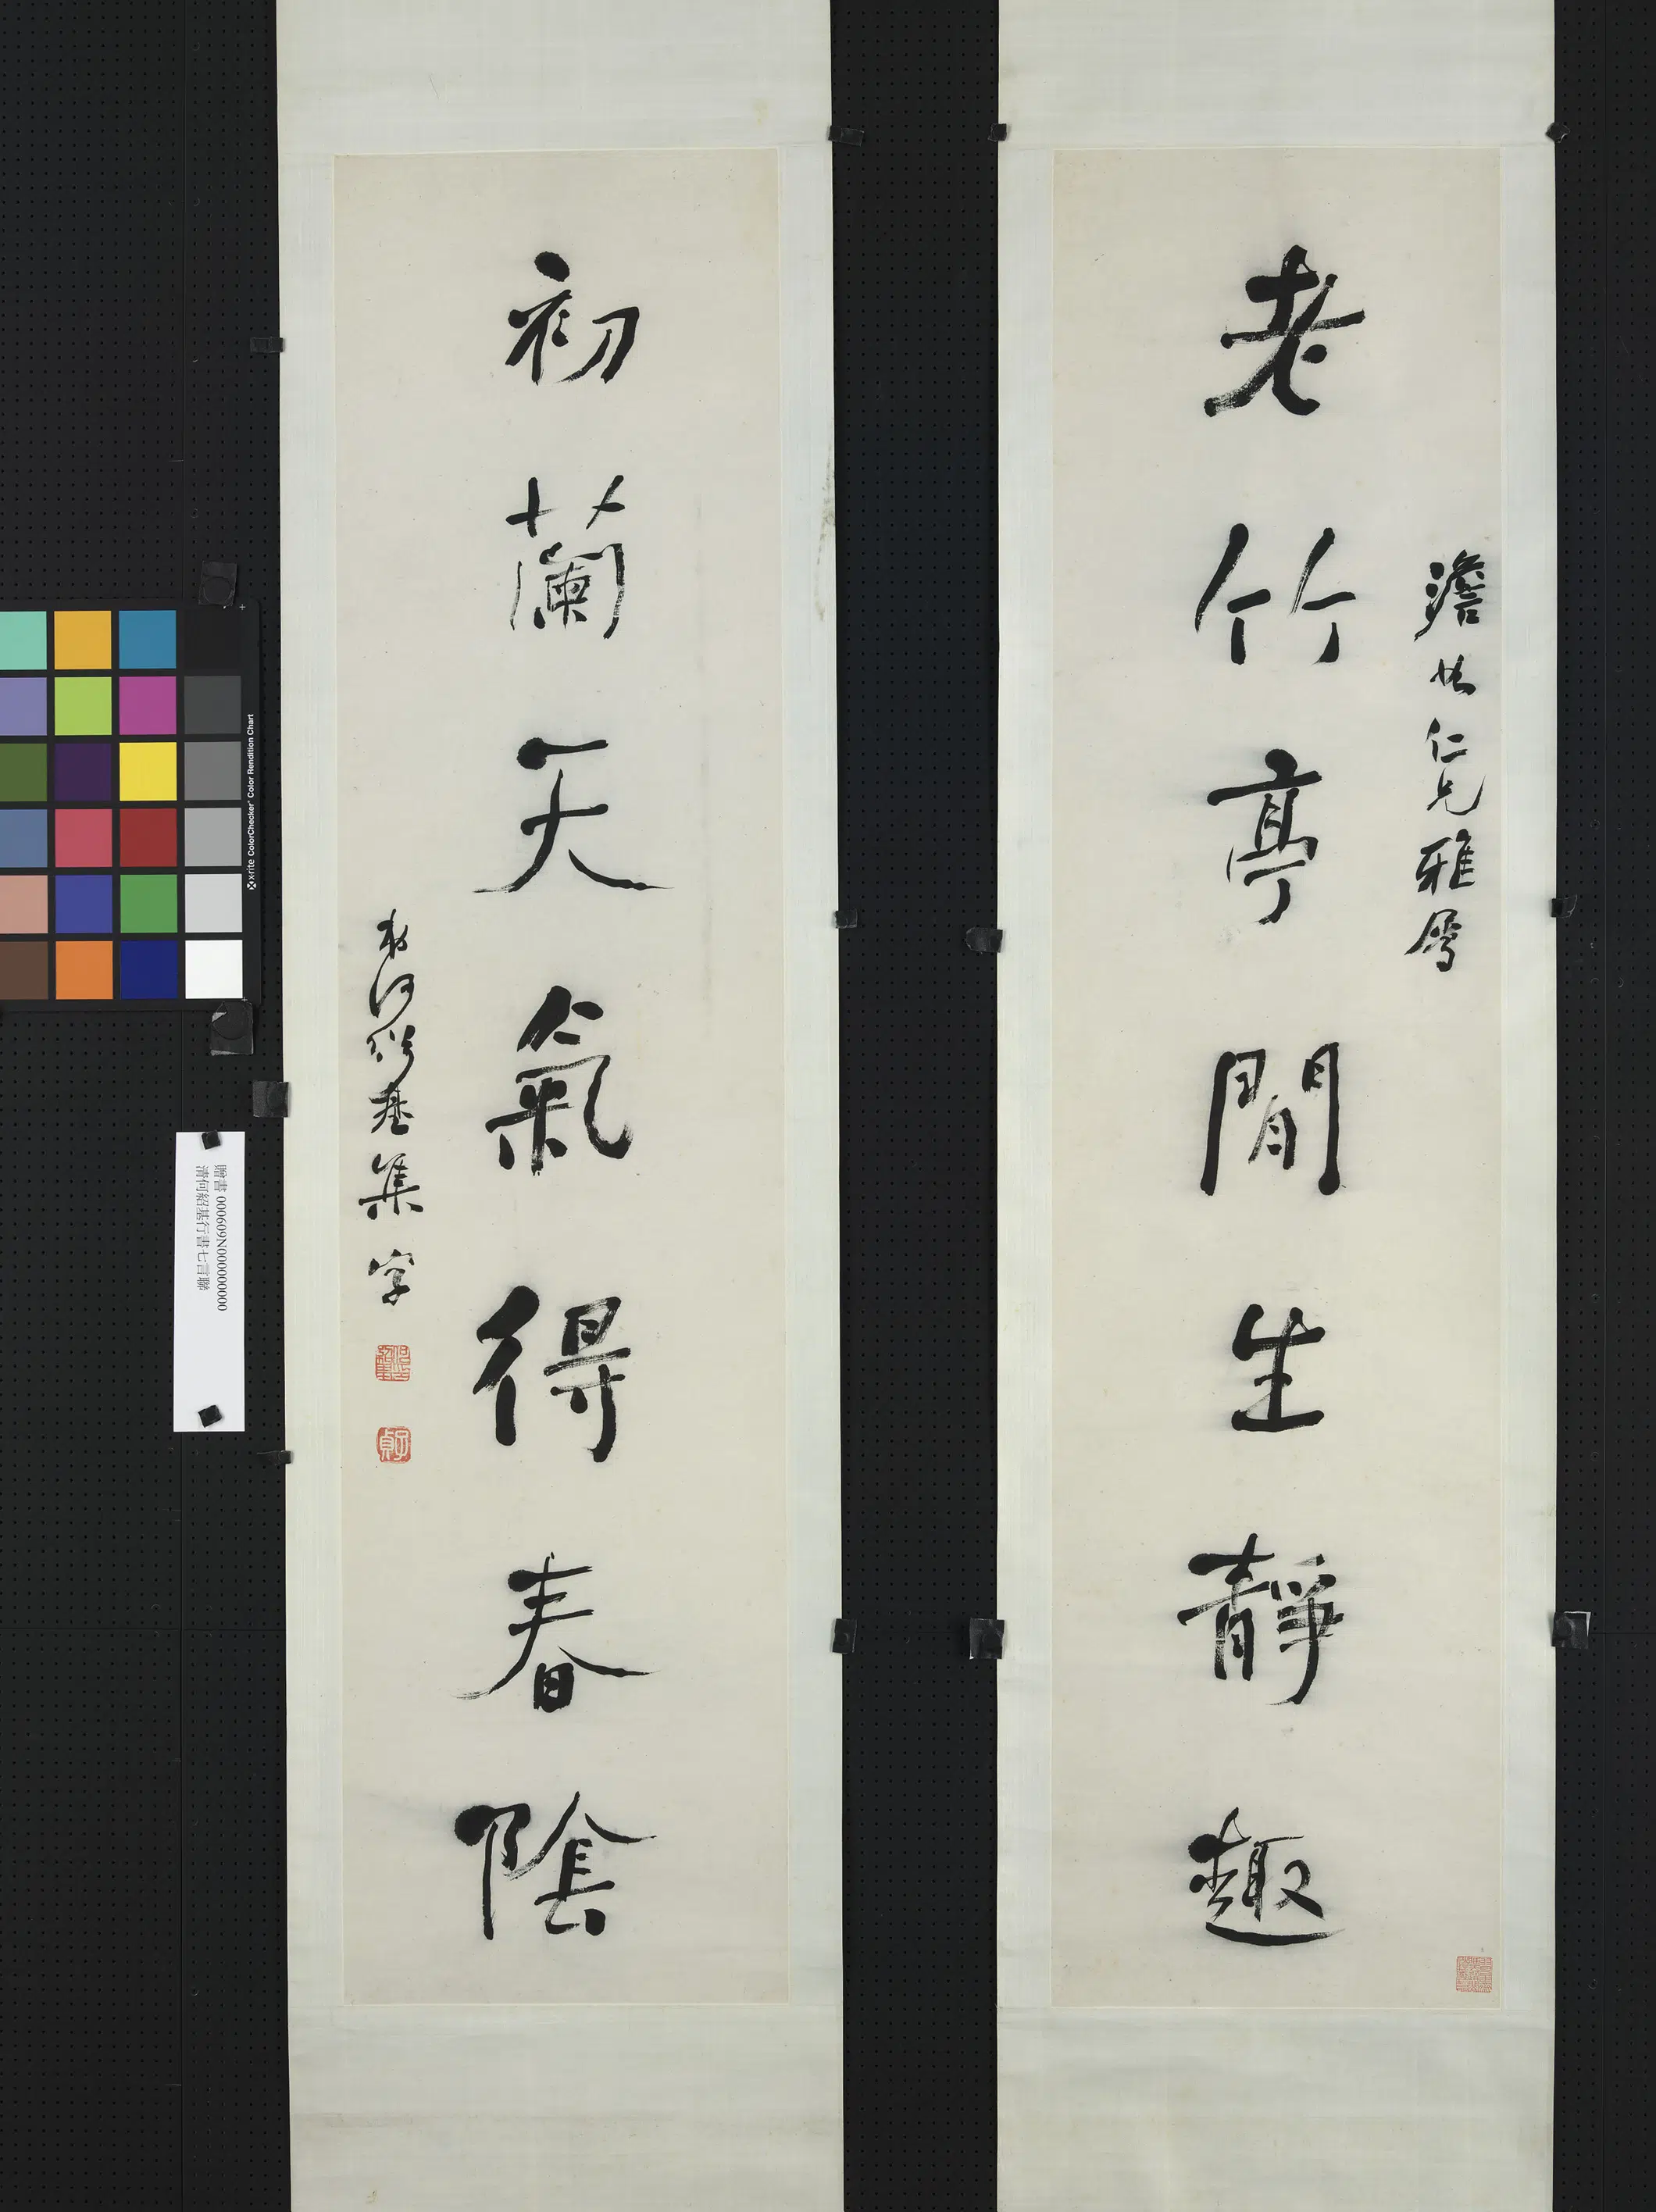 老竹亭閒生靜趣
仁兄雅屬
初蘭天氣得春陰
弟何紹基集字
子貞
贈書 000609N000000000
清何紹基行書七言聯
x-rite ColorChecker Color Rendition Chart